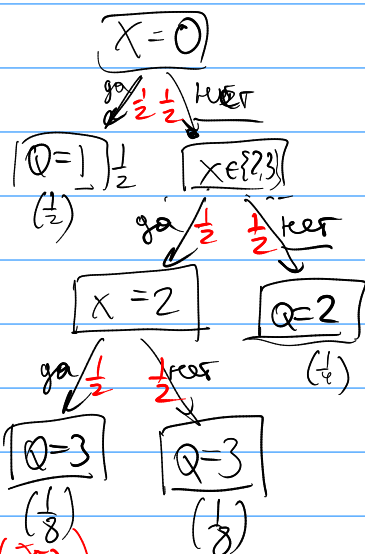 X = 0
да 1/2 1/2 нет
Q=1 1/2 x∈{2,3}
(1/2)
да 1/2 1/2 нет
x = 2 Q=2
(1/4)
да 1/2 1/2 нет
Q=3 Q=3
(1/8) (1/8)